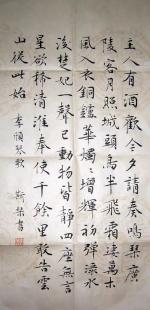 主人有酒歡今夕請奏鳴琴廣
陵客月照城頭烏半飛霜淒萬木
風入衣銅鑪華燭〻增輝初彈淥水
後楚妃一聲已動物皆靜四座無言
星欲稀清淮奉使千餘里敢告雲
山從此始 李頎琴歌 書